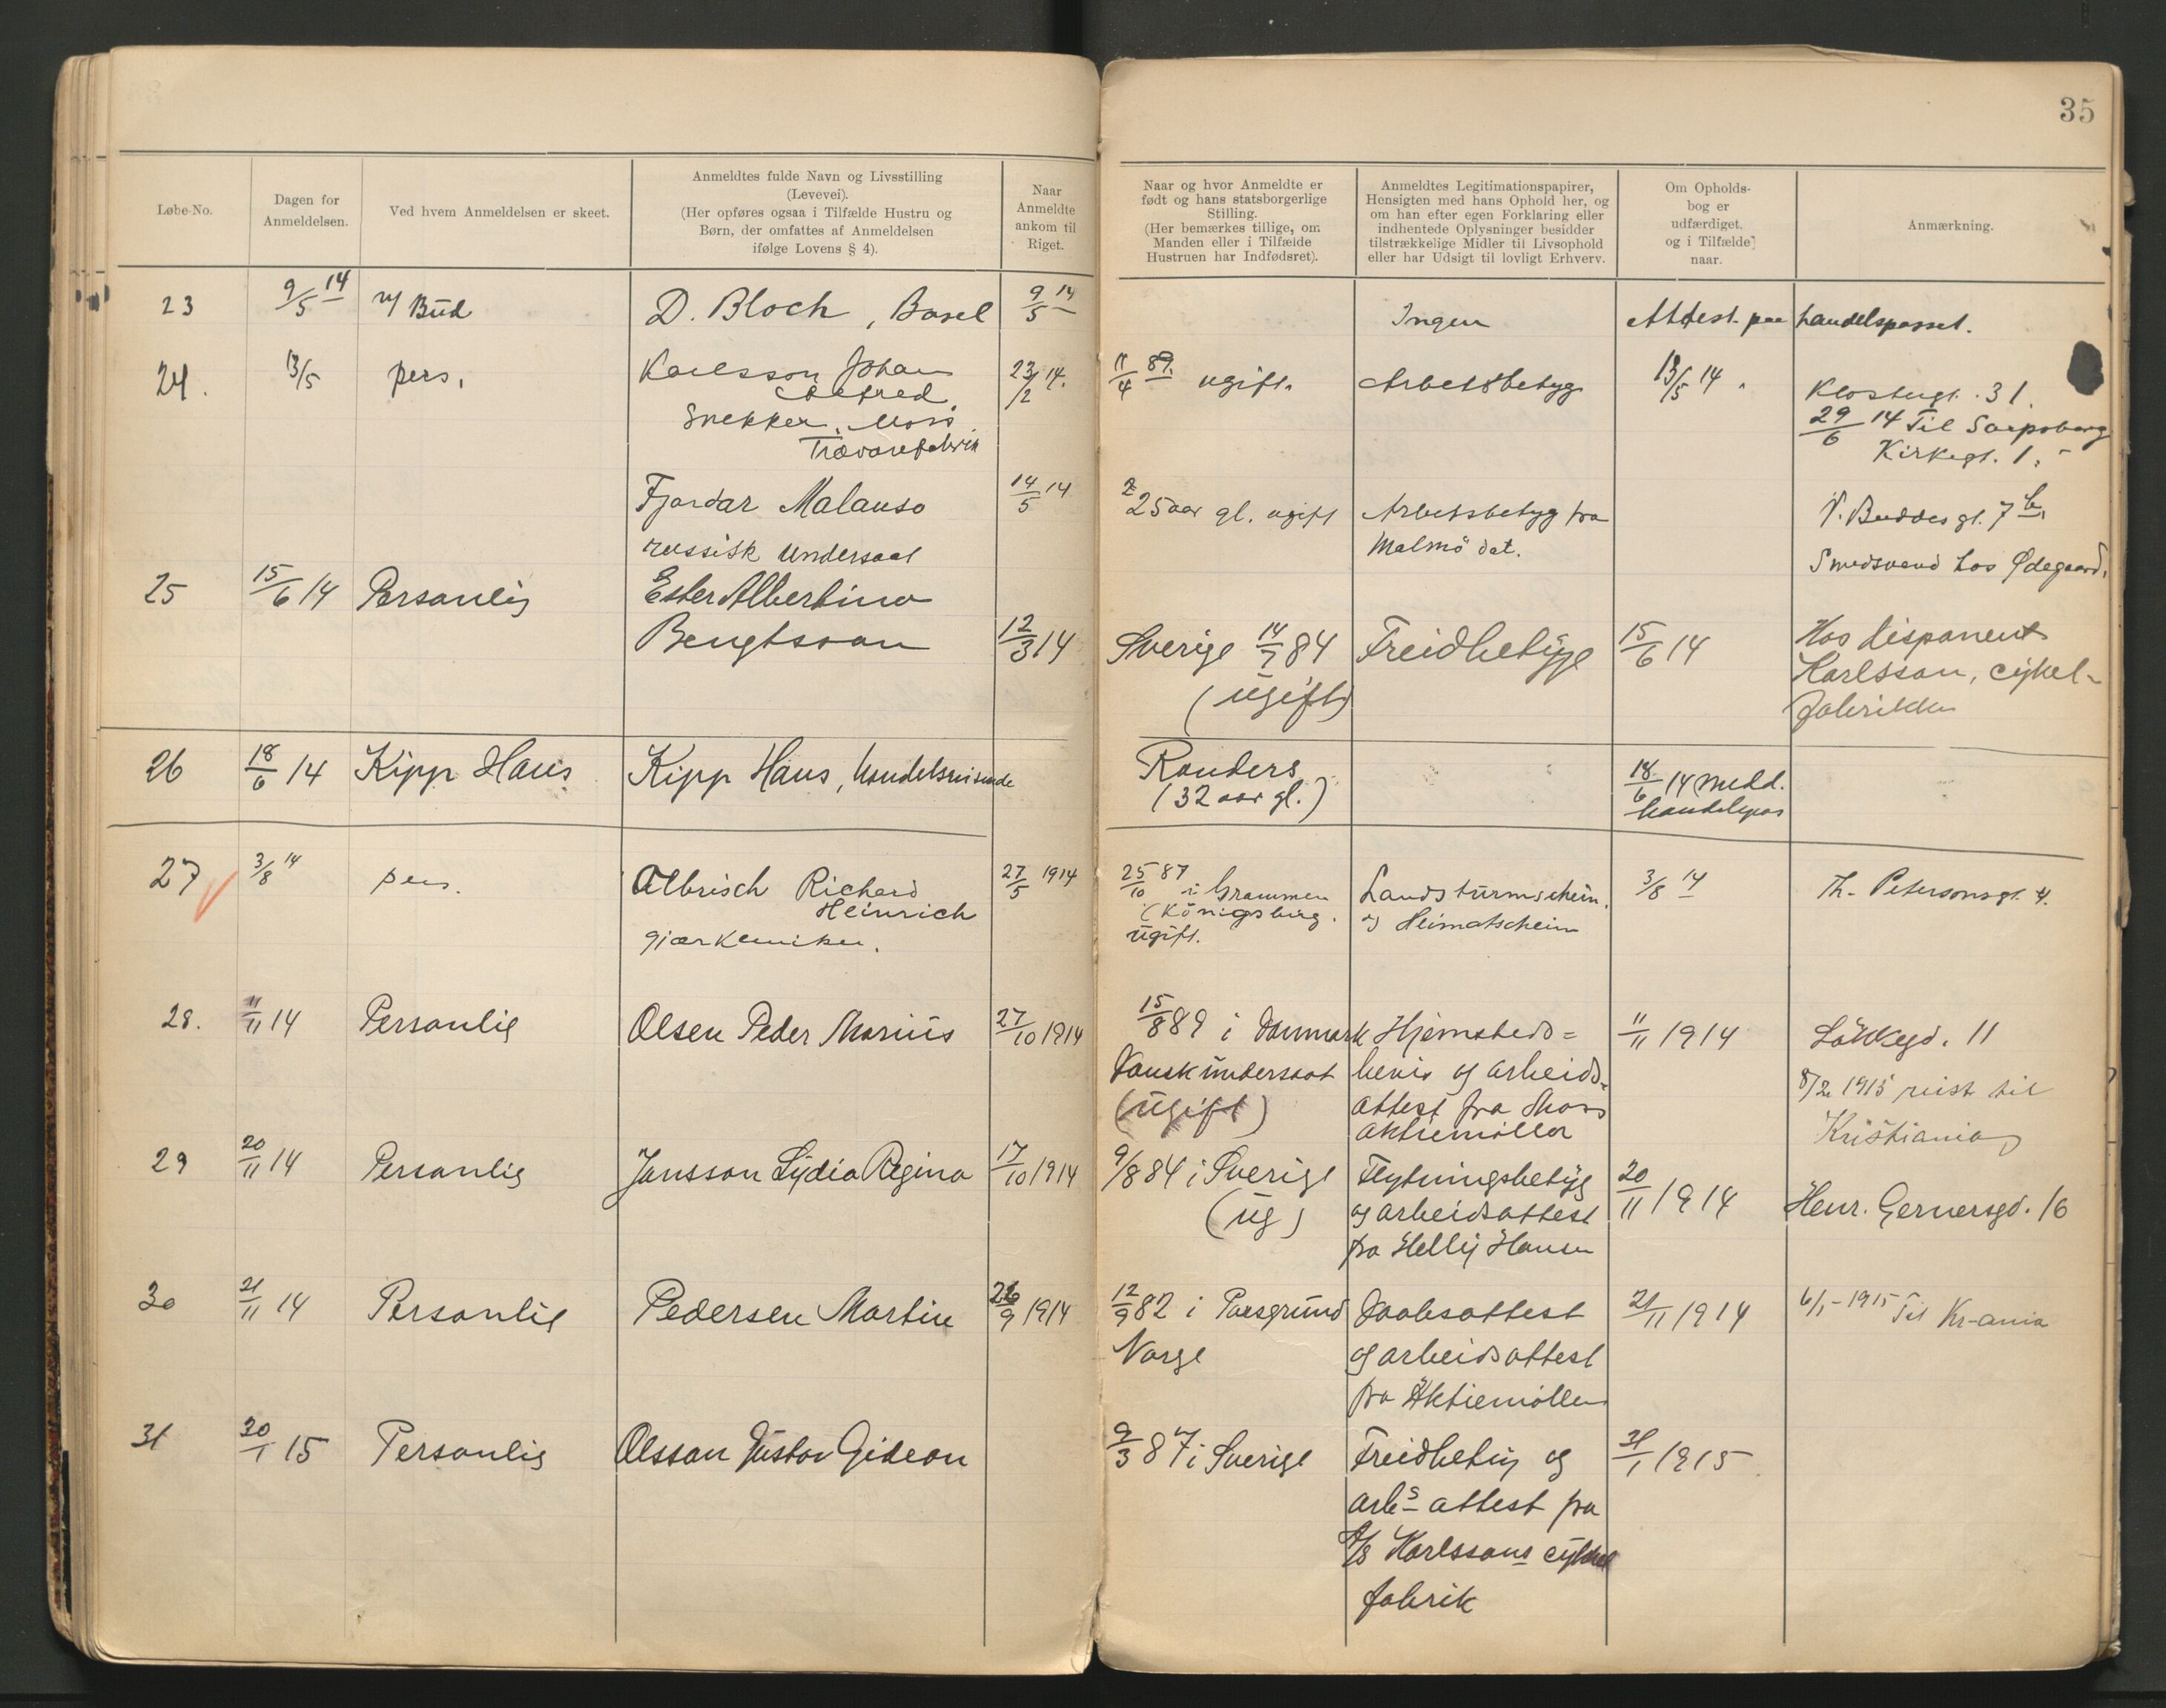 35
Løbe-No.
Dagen for
Anmeldelsen.
Ved hvem Anmeldelsen er skeet.
Anmeldtes fulde Navn og Livsstilling
(Levevei).
(Her opføres ogsaa i Tilfælde Hustru og
Børn, der omfattes af Anmeldelsen
ifølge Lovens § 4).
Naar
Anmeldte
ankom til
Riget.
Naar og hvor Anmeldte er
født og hans statsborgerlige
Stilling.
(Her bemærkes tillige, om
Manden eller i Tilfælde
Hustruen har Indfødsret).
Anmeldtes Legitimationspapirer,
Hensigten med hans Ophold her, og
om han efter egen Forklaring eller
indhentede Oplysninger besidder
tilstrækkelige Midler til Livsophold
eller har Udsigt til lovligt Erhverv.
Om Opholds-
bog er
udfærdiget.
og i Tilfælde
naar.
Anmærkning.
23 9/5 14 v/ Bud D. Bloch, Basel 9/5 14 Ingen Attest paa handelspasset.
24. 13/5 pers. Karlsson Johan 23/2 14. 11/4 89. ugift. Arbetsbetyg 13/5 14 Klostergt. 31.
Snekker, Moss
Trævarefabrik
29/6 14 Til Sarpsborg
Kirkegt. 1.
Fjordar Malauso 14/5 14 25 aar gl. ugift Arbetsbetyg fra V. Buddes gt. 7 b.
russisk Undersaat Malmö dat. Smedsvend hos Ødegaard.
25 15/6 14 Personlig Ester Albertina
Bengtsson 12/3 14 Sverige 14/7 84 Freidbetyge 15/6 14 Hos disponent
(ugift) Karlsson, cykel-
fabrikken
26 18/6 14 Kipp Hans Kipp Hans, handelsreisende Randers 18/6 14 medd.
(32 aar gl.) handelspas
27 3/8 14 pers. Albrisch Richard 27/5 1914 25/10 87 i Grammen Landsturmschein. 3/8 14 Th. Petersonsgt. 4.
Heinrich (Königsberg. og Heimatschein
gjærkemiker. ugift.
28. 11/11 14 Personlig Olsen Peder Marius 27/10 1914 15/8 89 i Danmark Hjemsteds= 11/11 1914 Løkkegd. 11
Dansk undersaat bevis og arbeids- 8/2 1915 reist til
(ugift) attest fra Moss Kristiania
aktiemøller
29 20/11 14 Personlig Jansson Lydia Regina 17/10 1914 9/8 84 i Sverige Flytningsbetyg 20/11 1914 Henr. Gernersgd. 16
(ug) og arbeidsattest
fra Helly Hansen
30 21/11 14 Personlig Pedersen Martin 26/9 1914 12/9 82 i Porsgrund Daabsattest 21/11 1914 6/1-1915 Til Kr-ania
Norge og arbeidsattest
fra Aktiemøllen
31 30/1 15 Personlig Olsson Gustav Gideon 9/3 87 i Sverige Freidbetyg og 31/1 1915
arbs attest fra
A/S Karlssons cykkel
fabrik